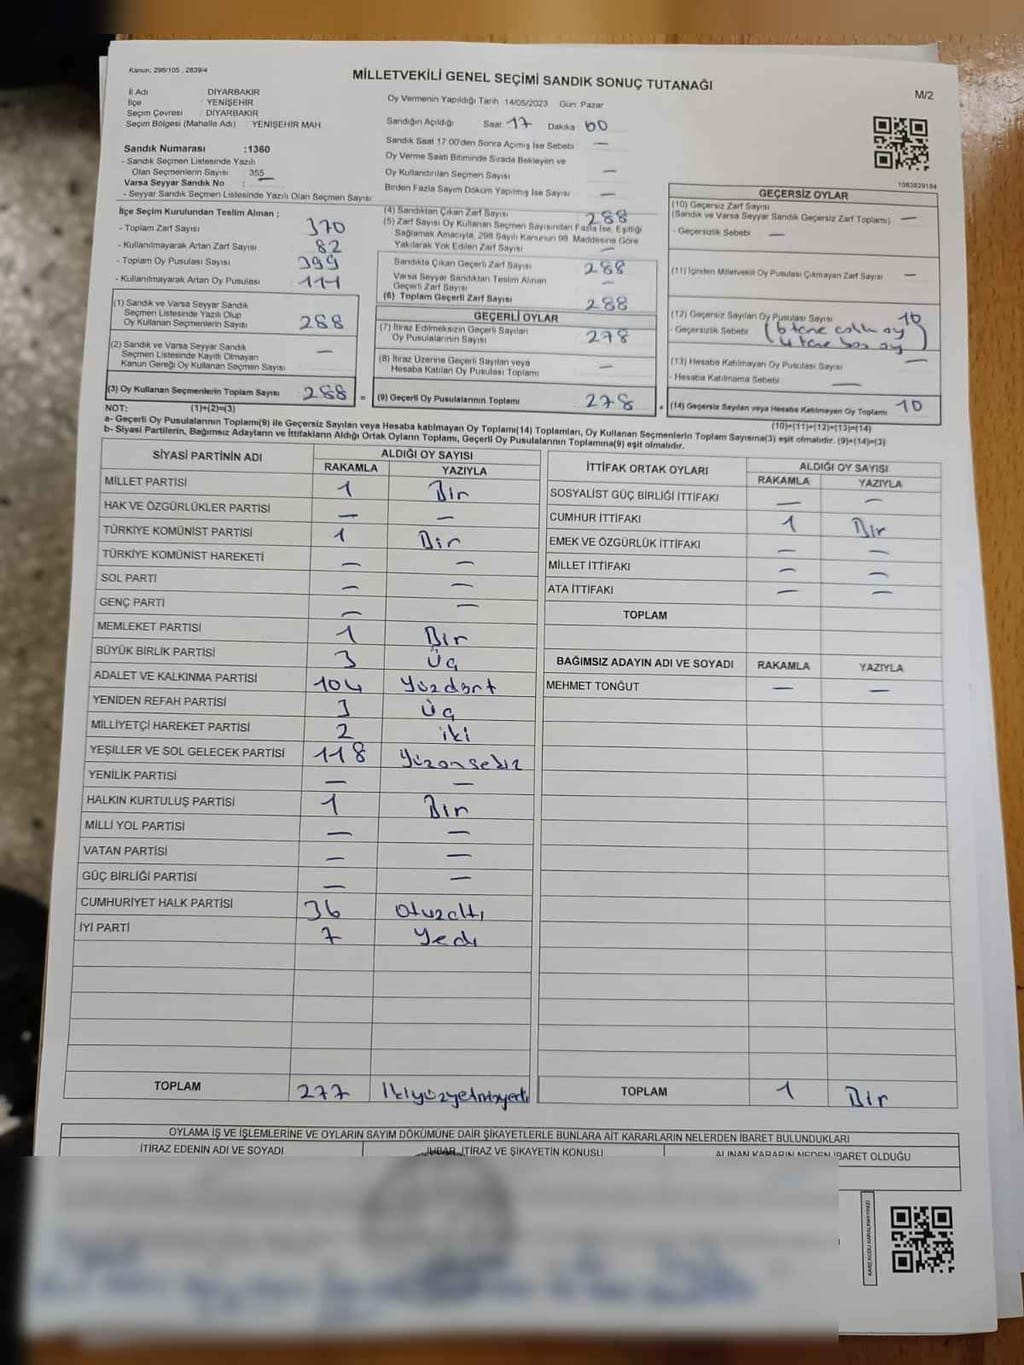 Kanun, 298/105 , 2839/4
MİLLETVEKİLİ GENEL SEÇİMİ SANDIK SONUÇ TUTANAĞI
M/2
İl Adı DİYARBAKIR
İlçe YENİŞEHİR
Seçim Çevresi DİYARBAKIR
Seçim Bölgesi (Mahalle Adı) : YENİŞEHİR MAH.
Oy Vermenin Yapıldığı Tarih 14/05/2023 Gün: Pazar
Sandığın Açıldığı Saat 17 Dakika 00
Sandık Saat 17:00'den Sonra Açılmış İse Sebebi —
Oy Verme Saati Bitiminde Sırada Bekleyen ve
Oy Kullandırılan Seçmen Sayısı —
Birden Fazla Sayım Döküm Yapılmış İse Sayısı —
Sandık Numarası :1360
- Sandık Seçmen Listesinde Yazılı
Olan Seçmenlerin Sayısı 355
Varsa Seyyar Sandık No : —
- Seyyar Sandık Seçmen Listesinde Yazılı Olan Seçmen Sayısı
1083839184
İlçe Seçim Kurulundan Teslim Alınan ;
- Toplam Zarf Sayısı 370
- Kullanılmayarak Artan Zarf Sayısı 82
- Toplam Oy Pusulası Sayısı 399
- Kullanılmayarak Artan Oy Pusulası 111
(1) Sandık ve Varsa Seyyar Sandık
Seçmen Listesinde Yazılı Olup
Oy Kullanan Seçmenlerin Sayısı 288
(2) Sandık ve Varsa Seyyar Sandık
Seçmen Listesinde Kayıtlı Olmayan
Kanun Gereği Oy Kullanan Seçmen Sayısı —
(3) Oy Kullanan Seçmenlerin Toplam Sayısı 288 =
(4) Sandıktan Çıkan Zarf Sayısı 288
(5) Zarf Sayısı Oy Kullanan Seçmen Sayısından Fazla İse, Eşitliği
Sağlamak Amacıyla, 298 Sayılı Kanunun 98. Maddesine Göre
Yakılarak Yok Edilen Zarf Sayısı —
Sandıkta Çıkan Geçerli Zarf Sayısı 288
Varsa Seyyar Sandıktan Teslim Alınan
Geçerli Zarf Sayısı —
(6) Toplam Geçerli Zarf Sayısı 288
GEÇERLİ OYLAR
(7) İtiraz Edilmeksizin Geçerli Sayılan
Oy Pusulalarının Sayısı 278
(8) İtiraz Üzerine Geçerli Sayılan veya
Hesaba Katılan Oy Pusulası Toplamı —
(9) Geçerli Oy Pusulalarının Toplamı 278 +
GEÇERSİZ OYLAR
(10) Geçersiz Zarf Sayısı
(Sandık ve Varsa Seyyar Sandık Geçersiz Zarf Toplamı) —
- Geçersizlik Sebebi —
(11) İçinden Milletvekili Oy Pusulası Çıkmayan Zarf Sayısı —
(12) Geçersiz Sayılan Oy Pusulası Sayısı 10
- Geçersizlik Sebebi (6 tane çoklu oy
4 tane boş oy)
(13) Hesaba Katılmayan Oy Pusulası Sayısı —
- Hesaba Katılmama Sebebi —
(14) Geçersiz Sayılan veya Hesaba Katılmayan Oy Toplamı 10
NOT: (1)+(2)=(3) (10)+(11)+(12)+(13)=(14)
a- Geçerli Oy Pusulalarının Toplamı(9) ile Geçersiz Sayılan veya Hesaba katılmayan Oy Toplamı(14) Toplamları, Oy Kullanan Seçmenlerin Toplam Sayısına(3) eşit olmalıdır. (9)+(14)=(3)
b- Siyasi Partilerin, Bağımsız Adayların ve İttifakların Aldığı Ortak Oyların Toplamı, Geçerli Oy Pusulalarının Toplamına(9) eşit olmalıdır.
SİYASİ PARTİNİN ADI ALDIĞI OY SAYISI
RAKAMLA YAZIYLA
MİLLET PARTİSİ 1 Bir
HAK VE ÖZGÜRLÜKLER PARTİSİ — —
TÜRKİYE KOMÜNİST PARTİSİ 1 Bir
TÜRKİYE KOMÜNİST HAREKETİ — —
SOL PARTİ — —
GENÇ PARTİ — —
MEMLEKET PARTİSİ 1 Bir
BÜYÜK BİRLİK PARTİSİ 3 Üç
ADALET VE KALKINMA PARTİSİ 104 Yüzdört
YENİDEN REFAH PARTİSİ 3 Üç
MİLLİYETÇİ HAREKET PARTİSİ 2 iki
YEŞİLLER VE SOL GELECEK PARTİSİ 118 Yüzonsekiz
YENİLİK PARTİSİ — —
HALKIN KURTULUŞ PARTİSİ 1 Bir
MİLLİ YOL PARTİSİ — —
VATAN PARTİSİ — —
GÜÇ BİRLİĞİ PARTİSİ — —
CUMHURİYET HALK PARTİSİ 36 otuzaltı
İYİ PARTİ 7 Yedi
TOPLAM 277 İkiyüzyetmişyedi
İTTİFAK ORTAK OYLARI ALDIĞI OY SAYISI
RAKAMLA YAZIYLA
SOSYALİST GÜÇ BİRLİĞİ İTTİFAKI — —
CUMHUR İTTİFAKI 1 Bir
EMEK VE ÖZGÜRLÜK İTTİFAKI — —
MİLLET İTTİFAKI — —
ATA İTTİFAKI — —
TOPLAM
BAĞIMSIZ ADAYIN ADI VE SOYADI RAKAMLA YAZIYLA
MEHMET TONĞUT — —
TOPLAM 1 Bir
OYLAMA İŞ VE İŞLEMLERİNE VE OYLARIN SAYIM DÖKÜMÜNE DAİR ŞİKAYETLERLE BUNLARA AİT KARARLARIN NELERDEN İBARET BULUNDUKLARI
İTİRAZ EDENİN ADI VE SOYADI İTİRAZ VE ŞİKAYETİN KONUSU ALINAN KARARIN NEDEN İBARET OLDUĞU